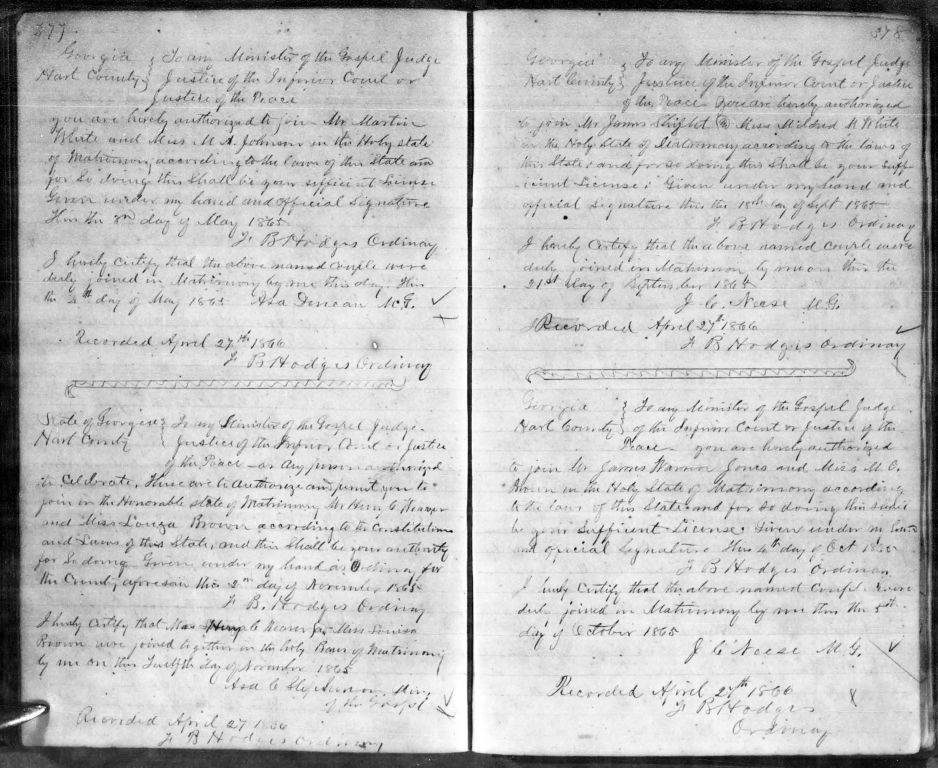 377
Georgia } To any Minister of the Gospel Judge
Hart County } Justice of the Inferior Court or
Justice of the Peace
you are hereby authorized to join Mr Martin
White and Miss M A Johnson in the Holy state
of Matrimony according to the laws of this State and
for So doing this Shall be your sufficient License
Given under my hand and official Signature
this the 3rd day of May 1865
F B Hodges Ordinary
I hereby certify that the above named Couple were
duly joined in Matrimony by me this day. This
the 4th day of May 1865 Asa Duncan M.G.
Recorded April 27th 1866
F B Hodges Ordinary
State of Georgia } To any Minister of the Gospel Judge
Hart County } Justice of the Inferior Court or Justice
of the Peace or any person authorized
to Celebrate, These are to authorize and permit you to
join in the Honorable state of Matrimony Mr Henry C
and Miss Louza Brown according to the Constitution
and Laws of this State, and this Shall be your authority
for So doing Given under my hand as Ordinary for
the County aforesaid this 2nd day of November 1865
F B. Hodges Ordinary
I hereby Certify that C Miss Louisa
Brown were joined together in the holy Bans of Matrimony
by me on this Twelfth day of November 1865
Asa C Min
of the Gospel
Recorded April 27 1866
F B Hodges Ordinary
378
Georgia } To any Minister of the Gospel Judge
Hart County } Justice of the Inferior Court or Justice
of the Peace You are hereby authorized
to join Mr James & Miss Mildred White
in the Holy State of Matrimony according to the laws of
this State, and for so doing this Shall be your Suff-
icient License: Given under my hand and
official Signature this the 18th day of Sept 1865
F B Hodges Ordinary
I hereby Certify that the above named Couple were
duly joined in Matrimony by me on this the
21st day of September 1865
J. C. Neese M.G.
Recorded April 27th 1866
F B Hodges Ordinary
Georgia } To any Minister of the Gospel Judge
Hart County } of the Inferior Court or Justice of the
Peace you are hereby authorized
to join Mr James Jones and Miss M. C.
Brown in the Holy State of Matrimony according
to the laws of this State and for so doing this Shall
be your Sufficient License: Given under my
and official Signature this 4th day of Oct 1865
F B Hodges Ordinary
I hereby Certify that the above named Coupl were
duly joined in Matrimony by me this the 5th
day of October 1865
J C Neese M G.
Recorded April 27th 1866
F B Hodges
Ordinary